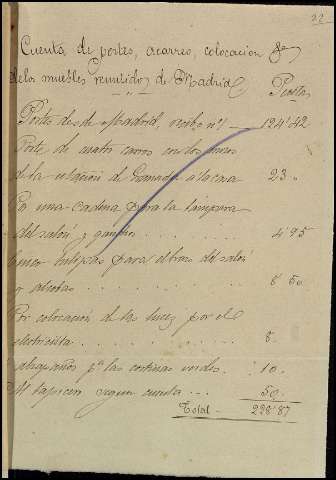 22
Cuenta de portes, acarreo, colocación &a
de los muebles remitidos de Madrid
Pesetas
Portes desde Madrid, recibo nº 1 — 124'42
Porte de cuatro carros en los
de la estación de Granada a la casa 23 „
Por una cadena para la lámpara
del salón y gancho . . . . . . . 4'95
para el del salón
y . . . . . . . . . 8 50
Por colocación de las luces por el
electricista . . . . . . . 8 „
pª las cortinas verdes . 10 „
Al tapicero según cuenta . . . 50 „
Total 228'87